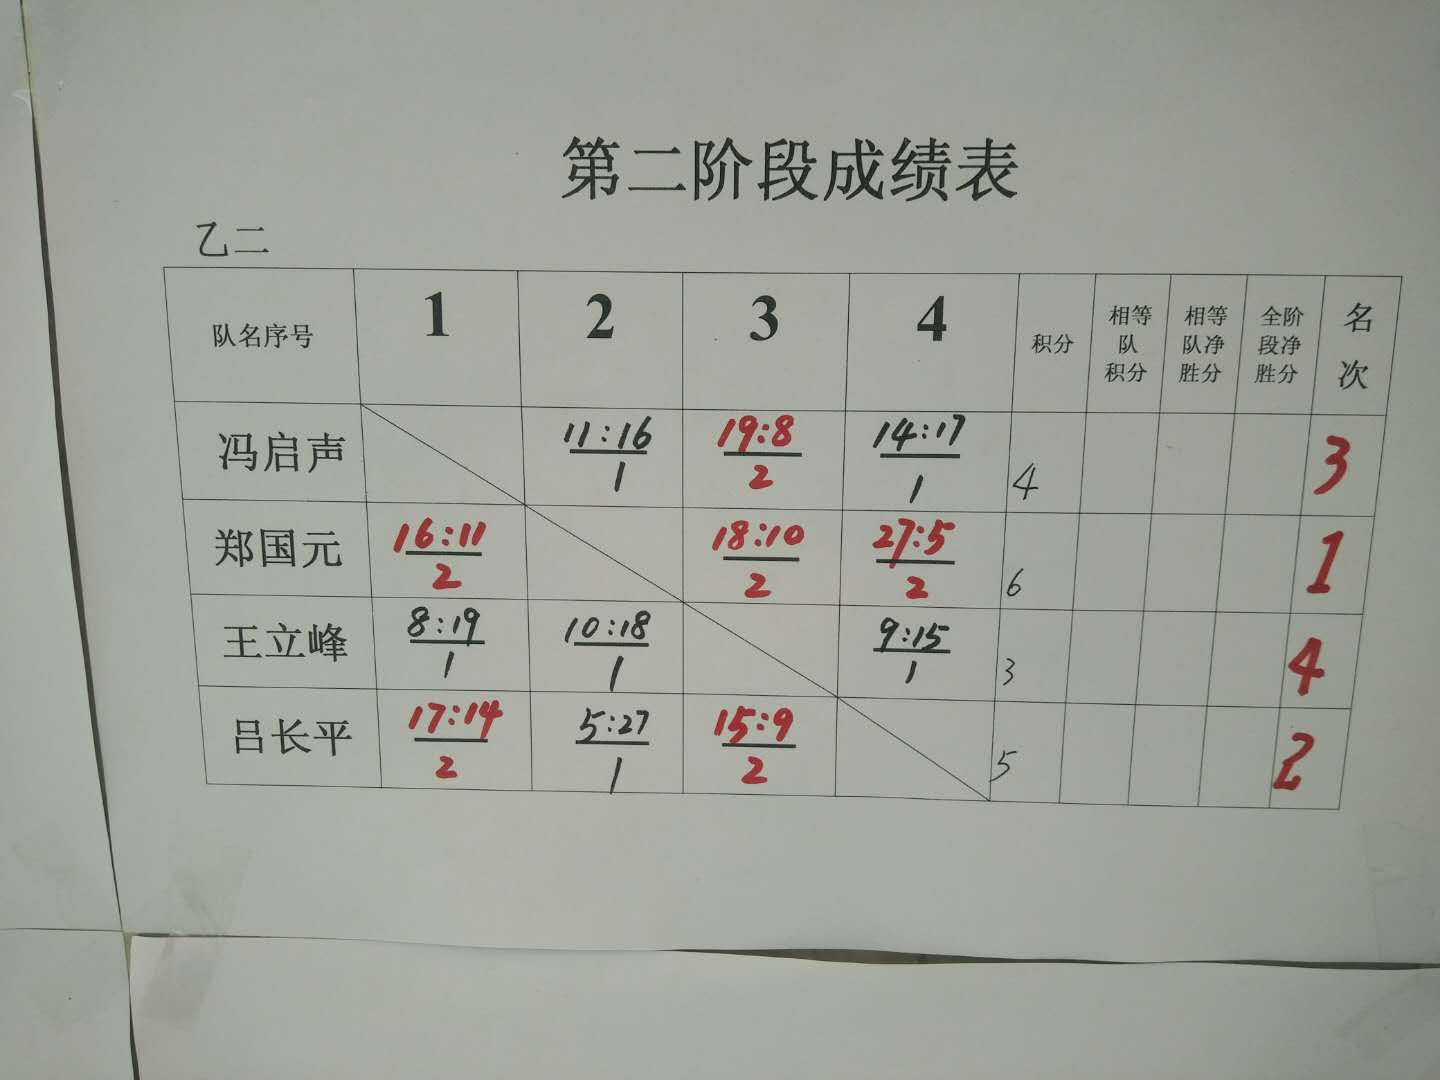 第二阶段成绩表
乙二
队名序号 1 2 3 4 积分 相等队积分 相等队净胜分 全阶段净胜分 名次
冯启声 11:16 19:8 14:17
1 2 1 4 3
郑国元 16:11 18:10 27:5
2 2 2 6 1
王立峰 8:19 10:18 9:15
1 1 1 3 4
吕长平 17:14 5:27 15:9
2 1 2 5 2